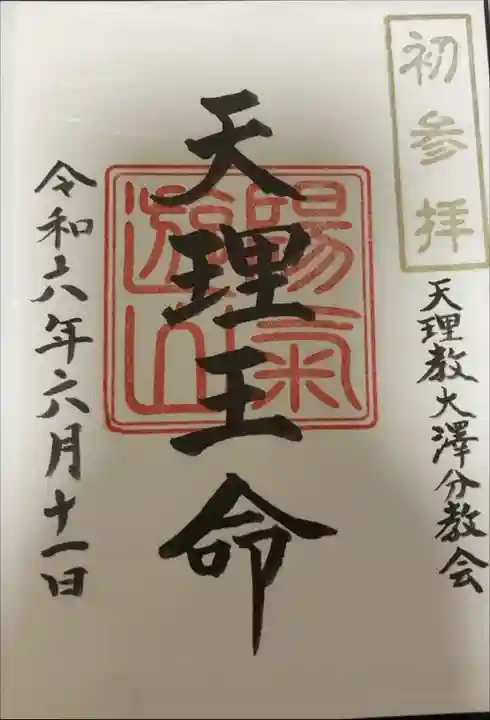 初参拝
天理教大澤分教会
天理王命
陽氣
遊山
令和六年六月十一日